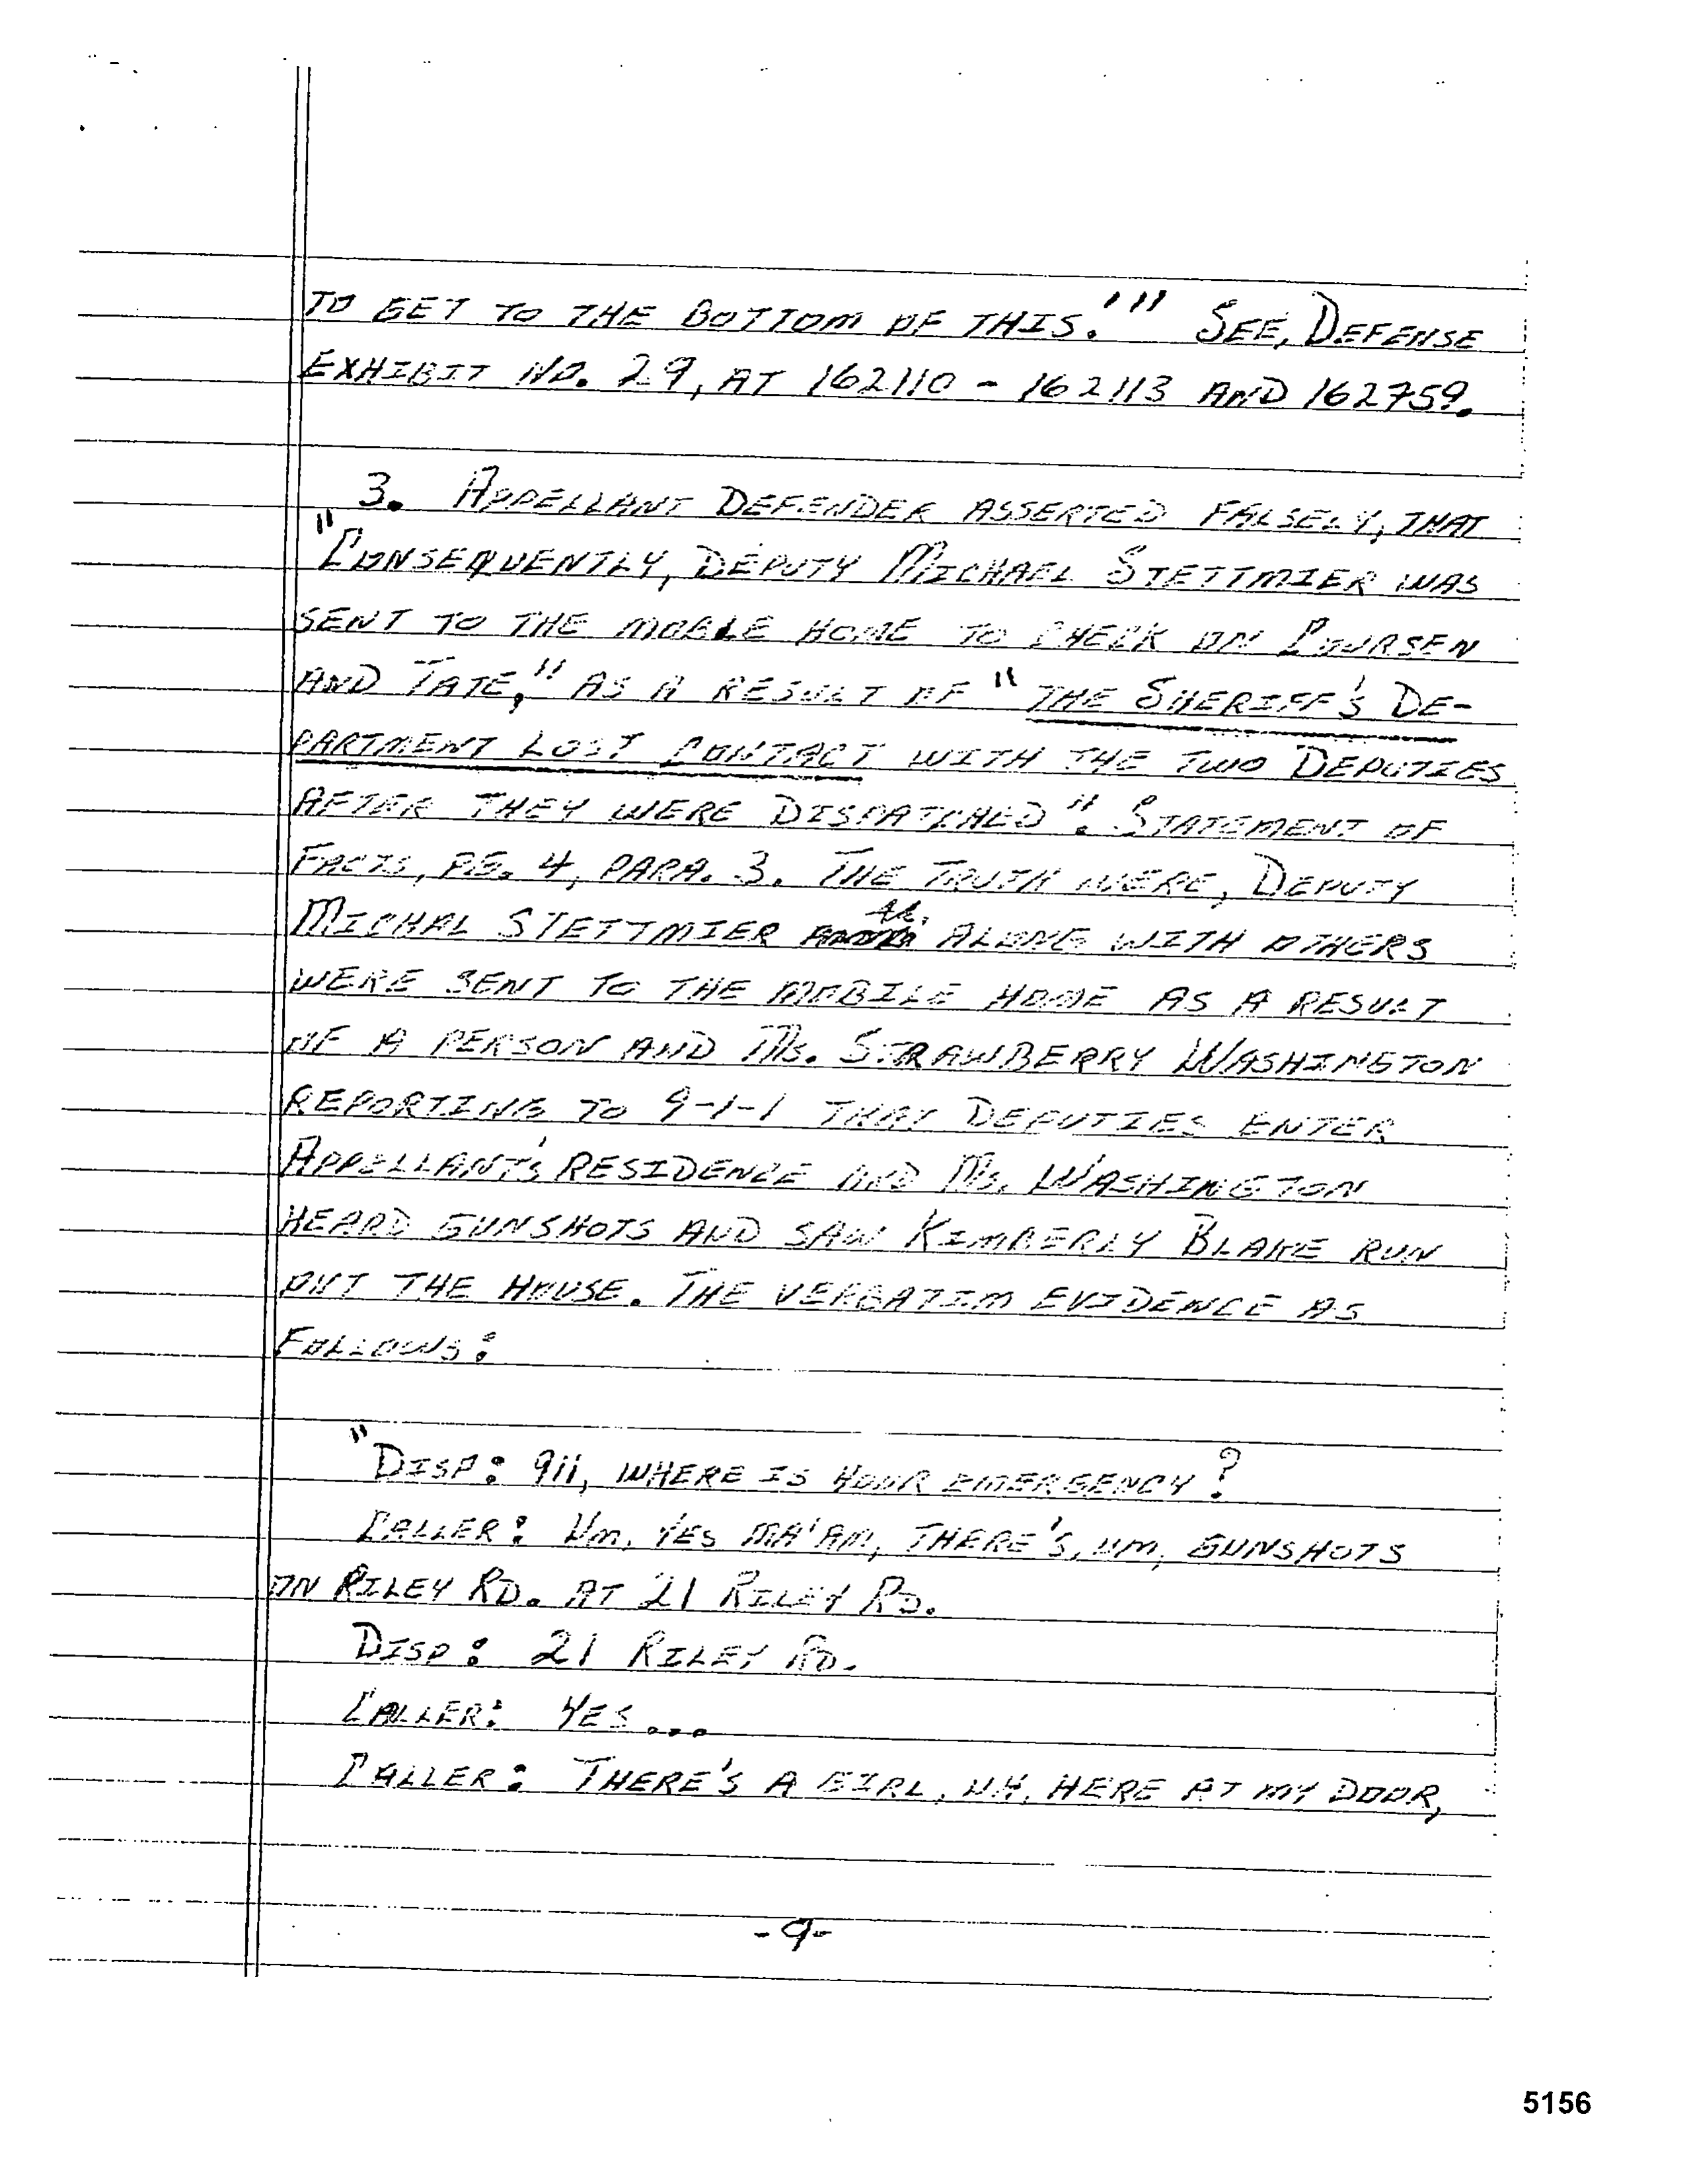 TO GET TO THE BOTTOM OF THIS.'" SEE, DEFENSE
EXHIBIT NO. 29, AT 162110 - 162113 AND 162759.
3. APPELLANT DEFENDER ASSERTED FALSELY, THAT
"CONSEQUENTLY, DEPUTY MICHAEL STETTMIER WAS
SENT TO THE MOBLE HOME TO CHECK ON COURSEN
AND TATE," AS A RESULT OF "THE SHERIFF'S DE-
PARTMENT LOST CONTACT WITH THE TWO DEPUTIES
AFTER THEY WERE DISPATCHED". STATEMENT OF
FACTS, PG. 4, PARA. 3. THE TRUTH WERE, DEPUTY
MICHAL STETTMIER ALONG WITH OTHERS
WERE SENT TO THE MOBILE HOME AS A RESULT
OF A PERSON AND MS. STRAWBERRY WASHINGTON
REPORTING TO 9-1-1 THAT DEPUTIES ENTER
APPELLANT'S RESIDENCE AND MS. WASHINGTON
HEARD GUNSHOTS AND SAW KIMBERLY BLAKE RUN
OUT THE HOUSE. THE VERBATIM EVIDENCE AS
FOLLOWS:
"DISP: 911, WHERE IS YOUR EMERGENCY?
CALLER: UM, YES MA'AM, THERE'S, UM, GUNSHOTS
ON RILEY RD. AT 21 RILEY RD.
DISP: 21 RILEY RD.
CALLER: YES...
CALLER: THERE'S A GIRL, UH, HERE AT MY DOOR,
-9-
5156